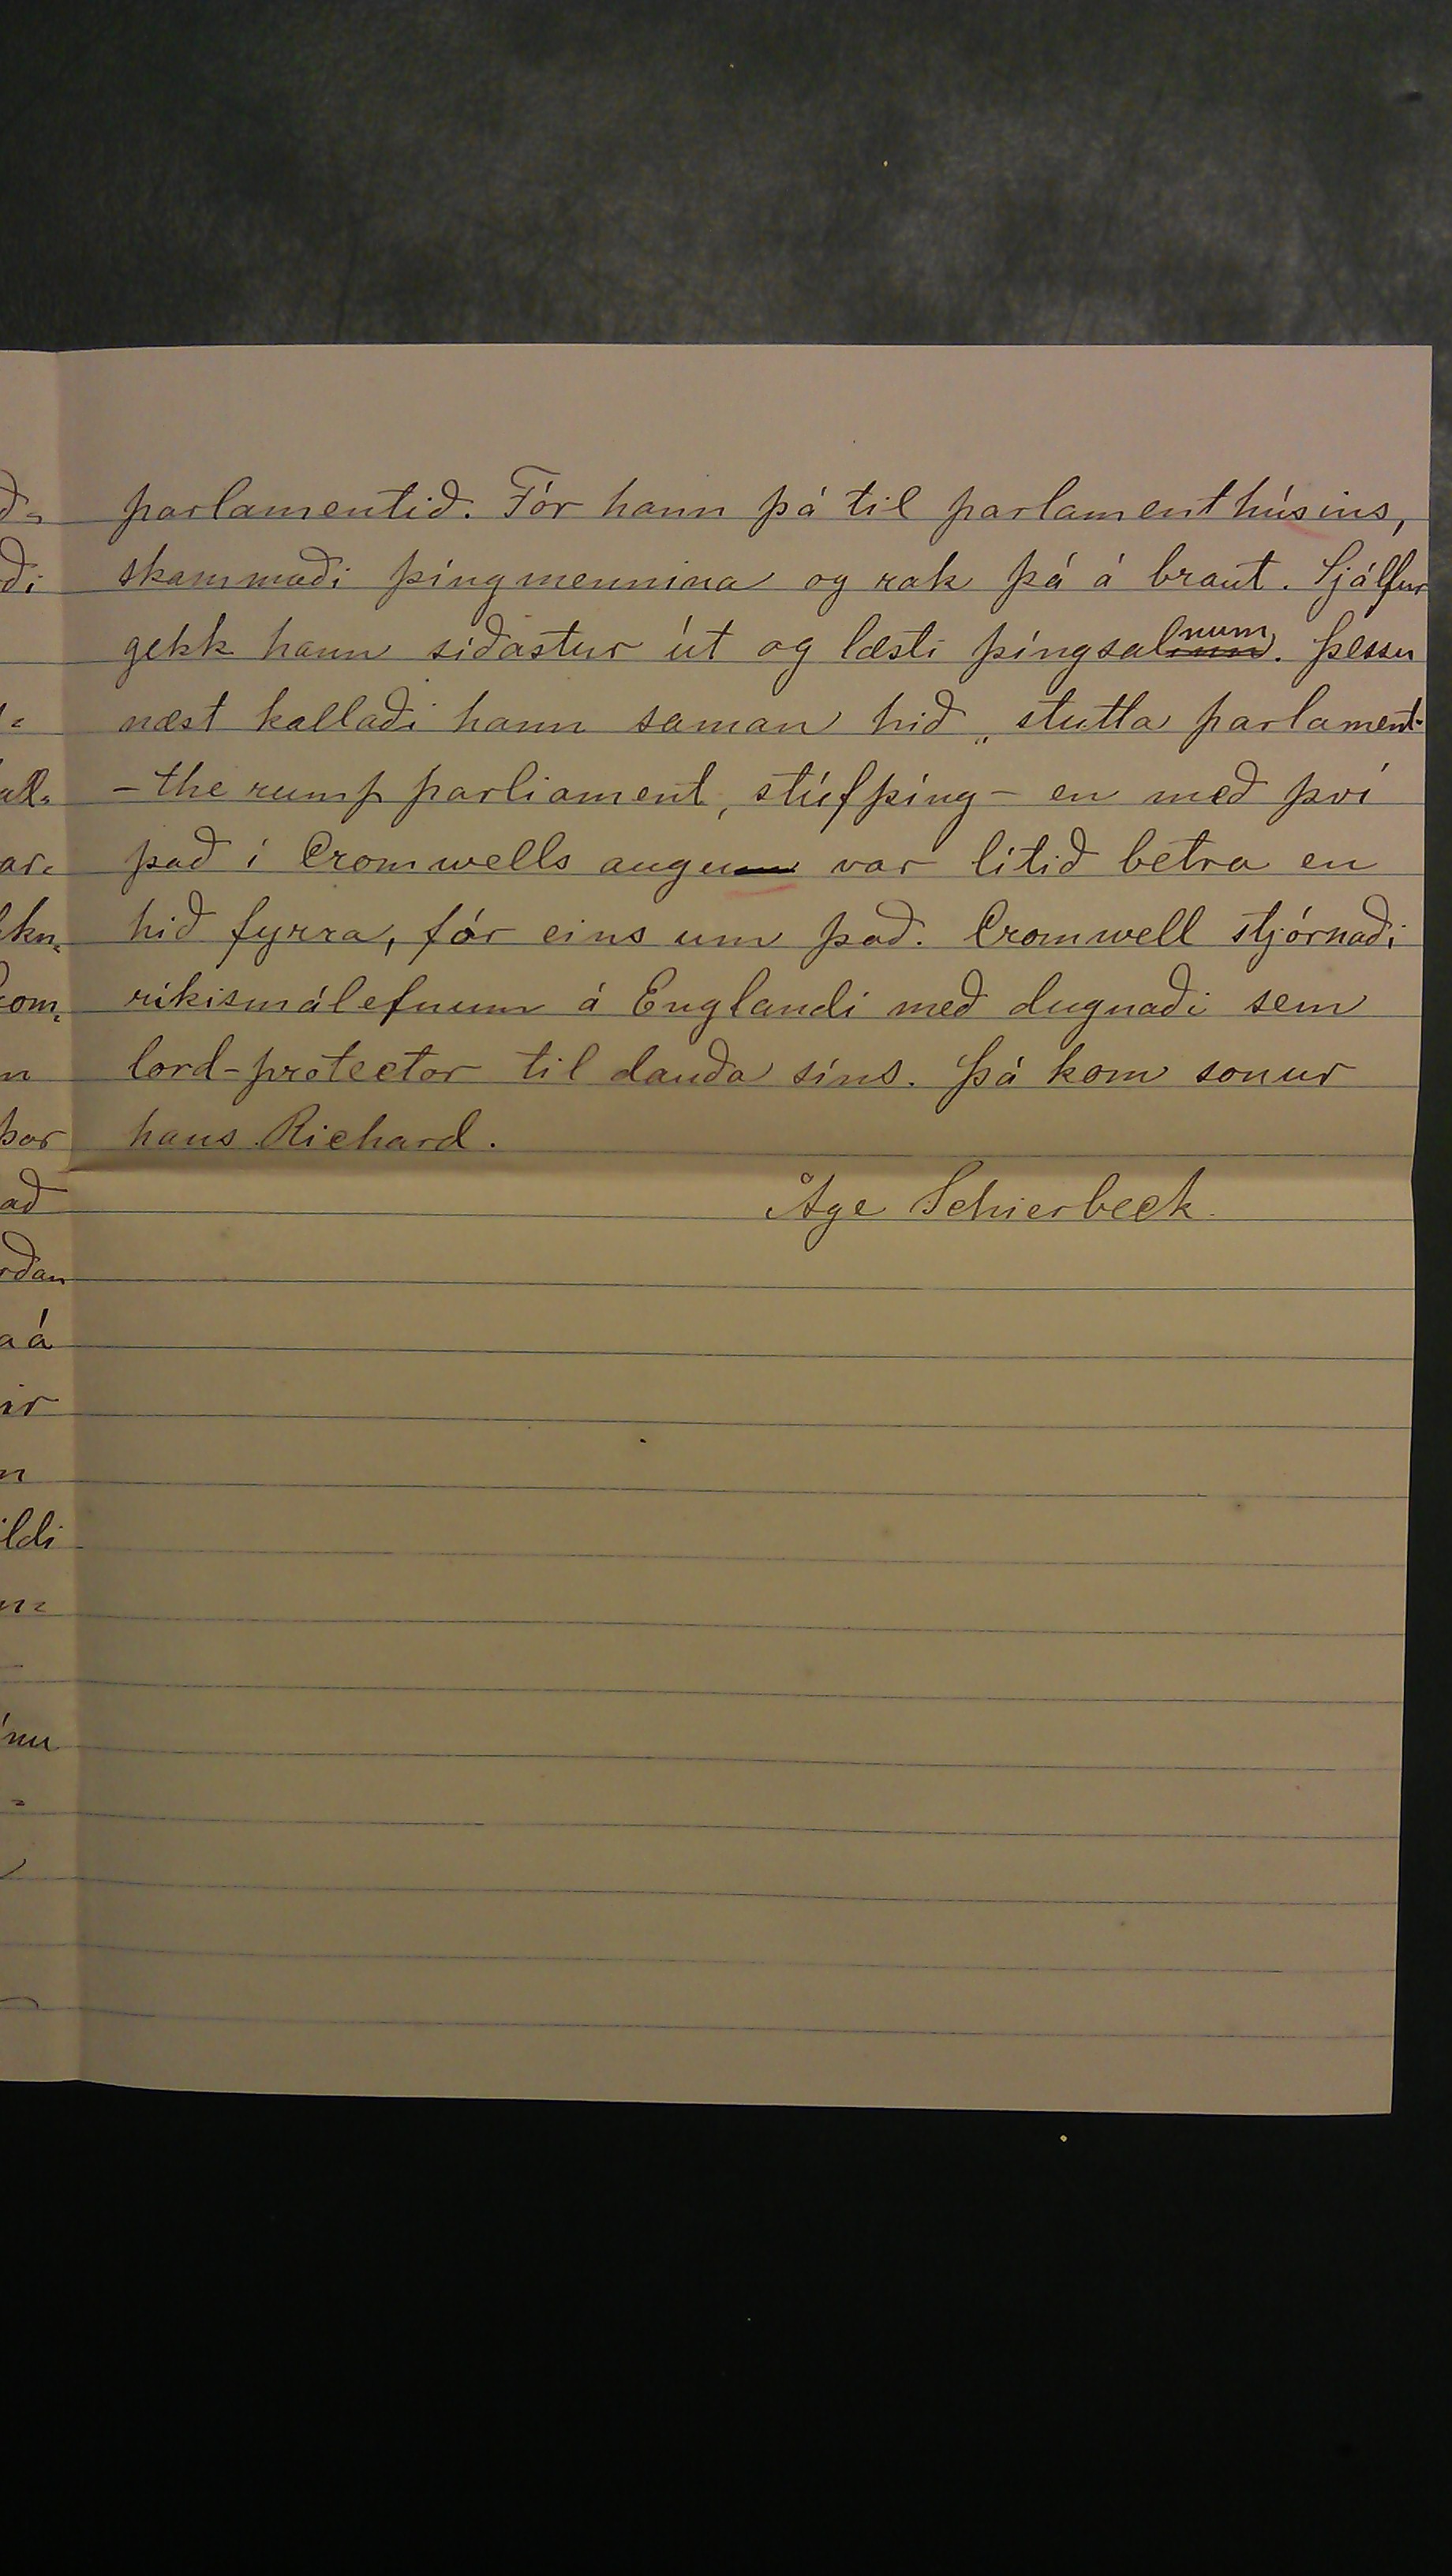 parlamentið. Fór hann þá til parlamenthúsins,
skammaði þingmennina og rak þá á braut. Sjálfur
gekk hann síðastur út og læsti þingsalnum. Þessu
næst kallaði hann saman hið „stutta parlament"
- the rump parliament, stúfþing - en með því
það í Cromwells augum var lítið betra en
hið fyrra, fór eins um það. Cromwell stjórnaði
ríkismálefnum á Englandi með dugnaði sem
lord-protector til dauða síns. Þá kom sonur
hans Richard.
Åge Schierbeck.